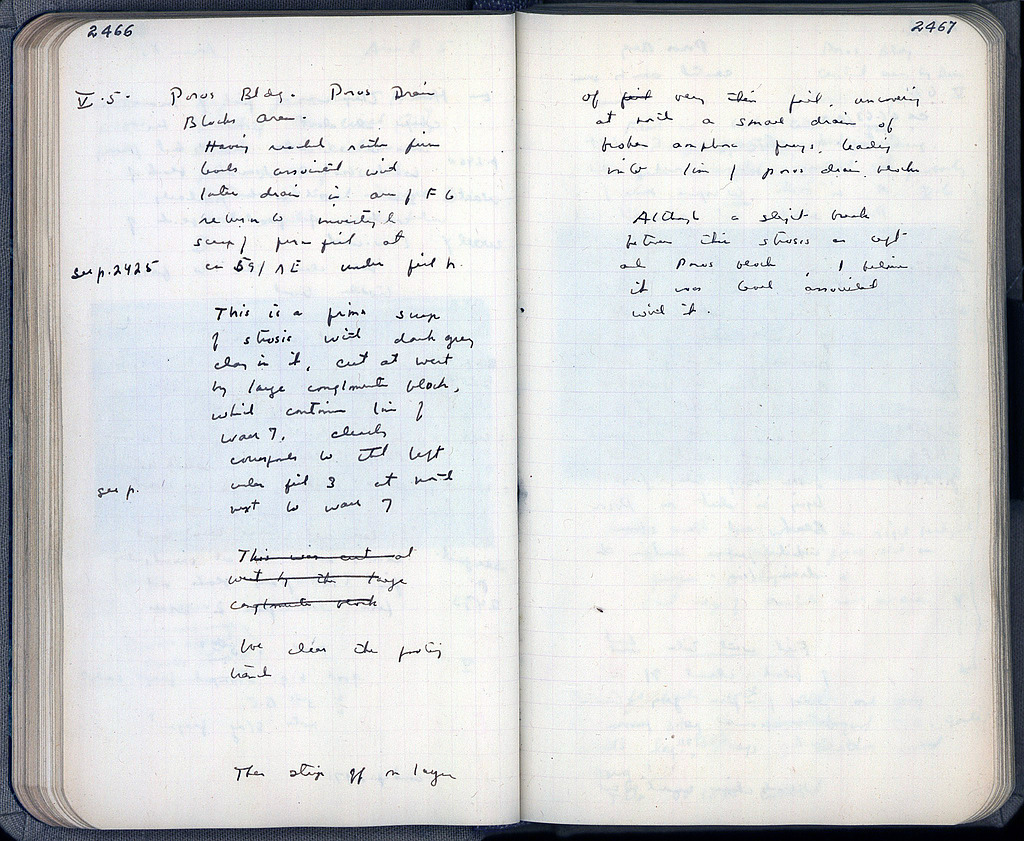 2466
V.5. Poros Bldg. Poros Drain
Blocks Area.
Having reached rather firm
levels associated with
later drain in area of F6
return to investigate
scrap of firm fill at
see p. 2425
59/ΛE under fill
This is a firm scrap
of strosis with dark grey
clay in it, cut at west
by large conglomerate block,
which continues line of
wall 7. clearly
corresponds to that left
under fill 3 at north
see p.
next to wall 7
This was cut at
west by the large
conglomerate block
We clear the footing
trench
Then strip off a layer
2467
of very thin fill, uncovering
at north a small drain of
broken amphora frags. leading
into line of poros drain blocks
Although a slight break
between this strosis as kept
and Poros block, I believe
it was level associated
with it.